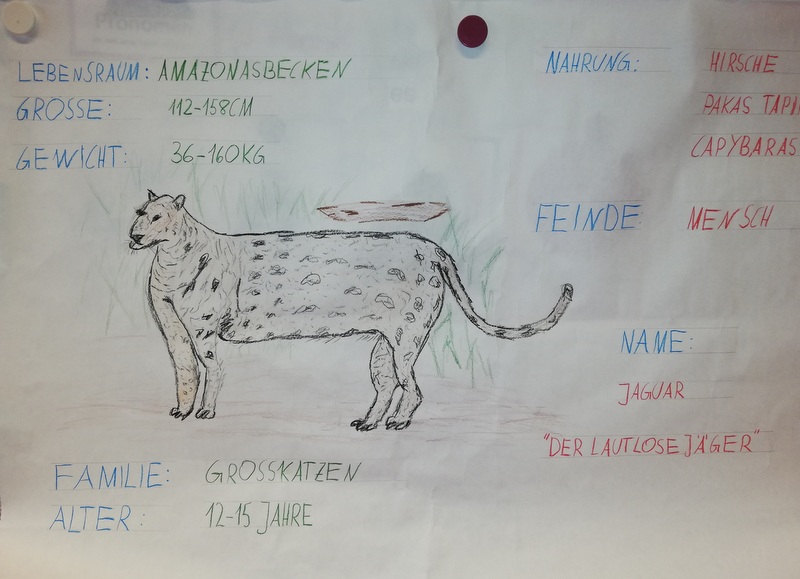 LEBENSRAUM: AMAZONASBECKEN
GRÖSSE: 112-158CM
GEWICHT: 36-160KG
NAHRUNG: HIRSCHE
PAKAS TAPI
CAPYBARAS
FEINDE: MENSCH
NAME:
JAGUAR
"DER LAUTLOSE JÄGER"
FAMILIE: GROSSKATZEN
ALTER: 12-15 JAHRE